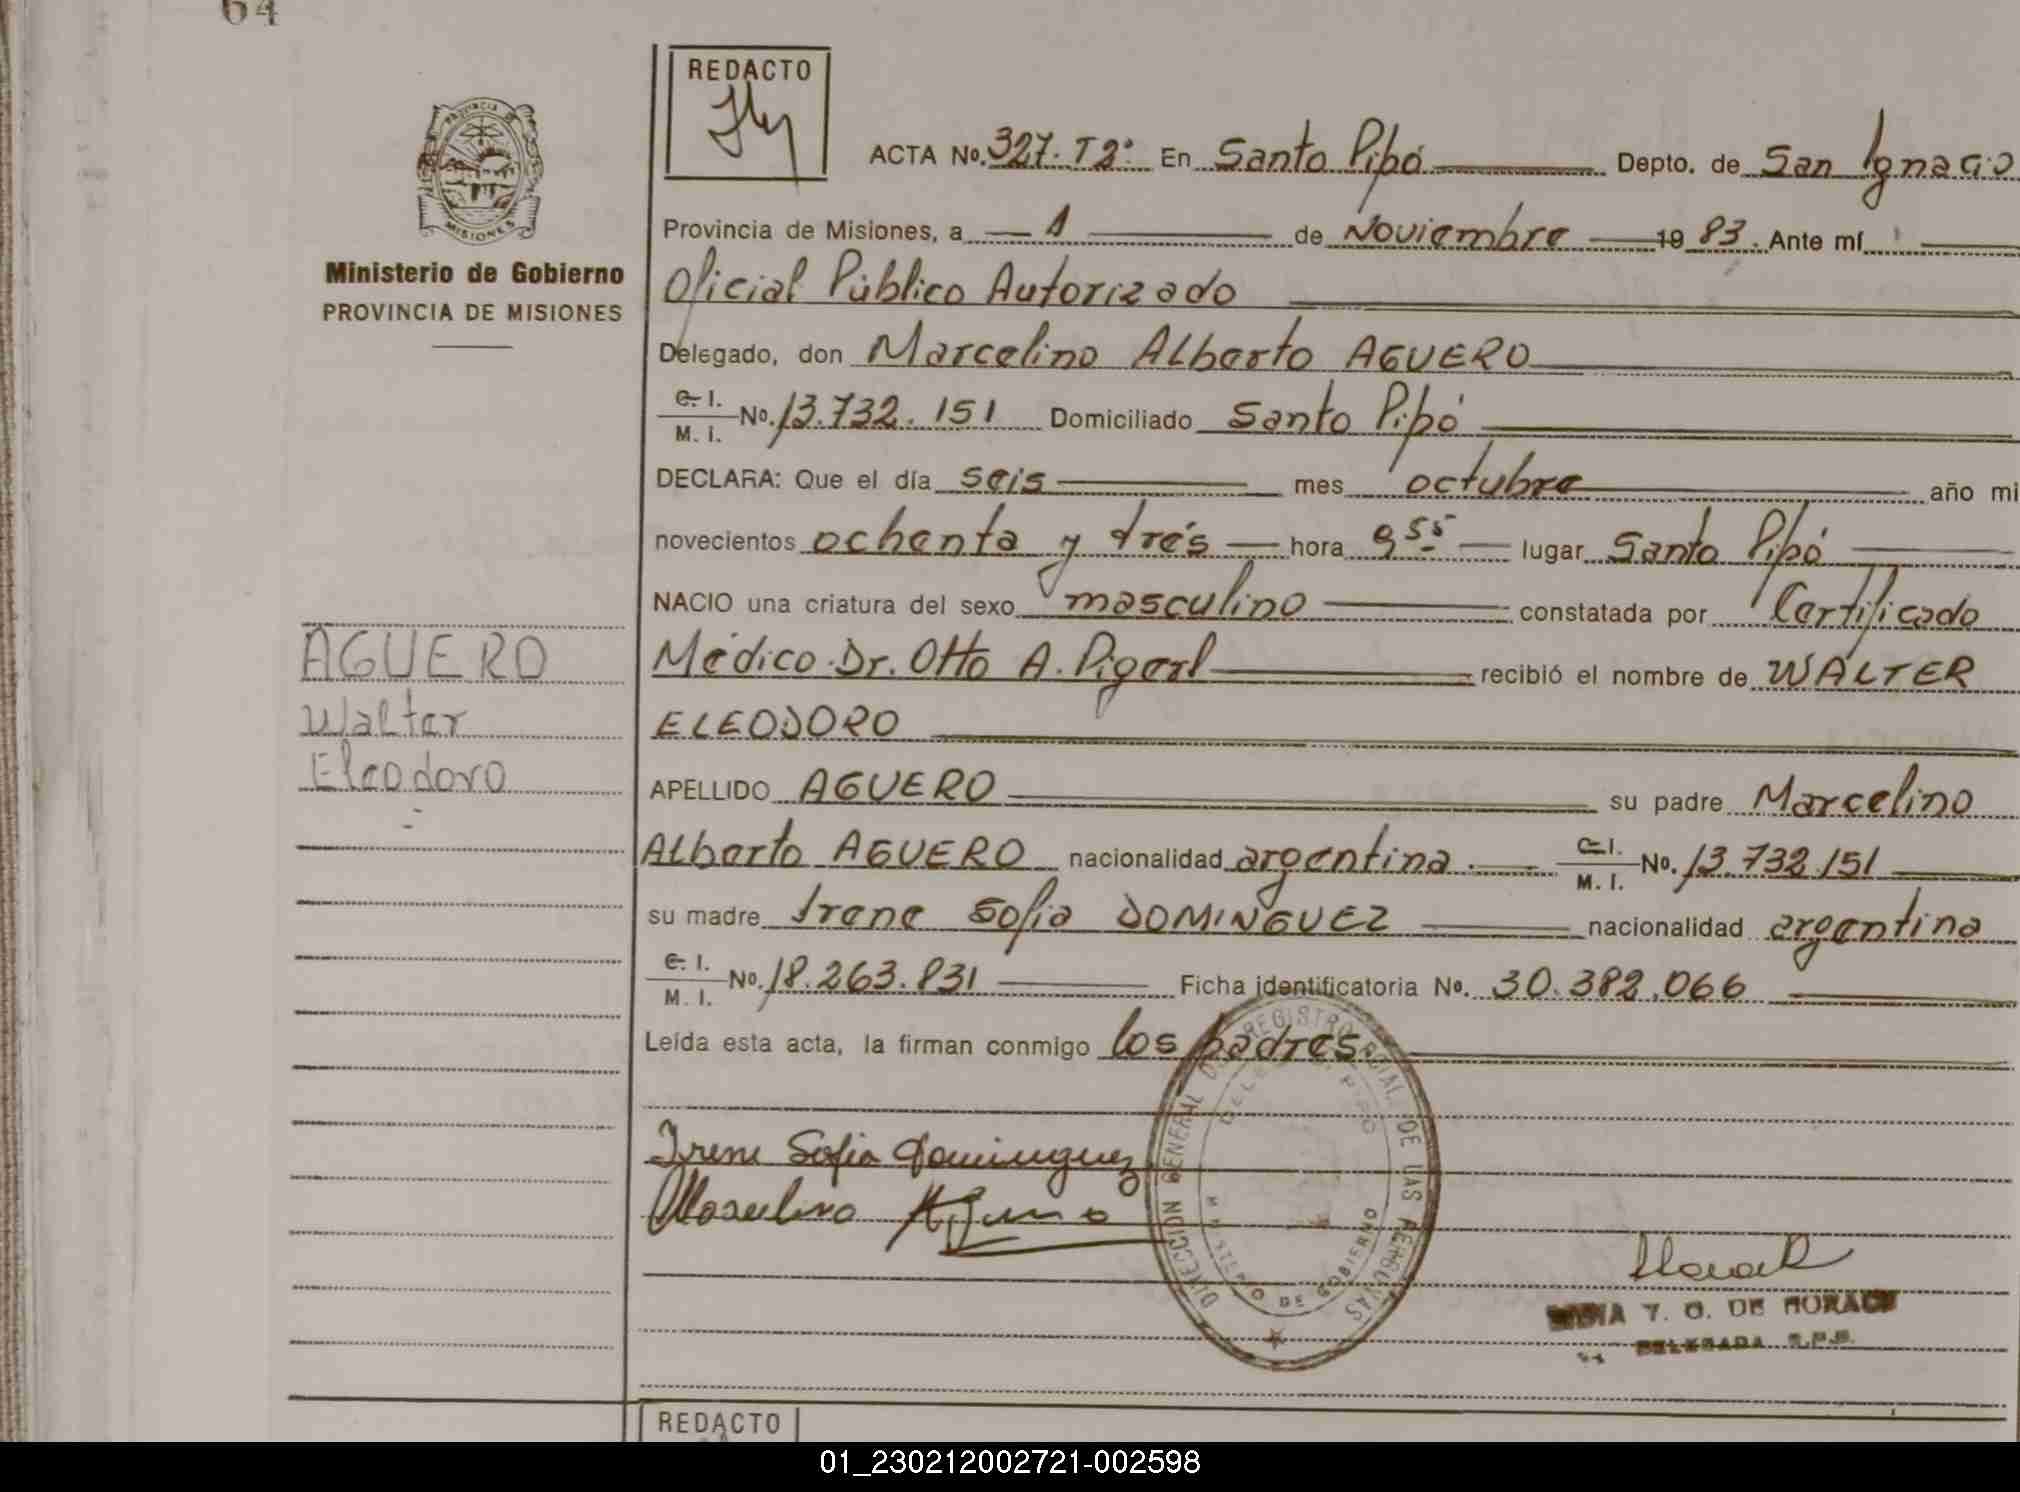 64
REDACTO
ACTA No. 327. T2º En Santo Pipó Depto. de San Ignacio
Provincia de Misiones, a 1 de Noviembre 19 83. Ante mí
Oficial Público Autorizado
Delegado, don Marcelino Alberto AGUERO
C. I.
M. I. No. 13.732.151 Domiciliado Santo Pipó
DECLARA: Que el día seis mes octubre año mi
novecientos ochenta y trés hora 9 55 lugar Santo Pipó
NACIO una criatura del sexo masculino constatada por Certificado
Médico Dr. Otto A. recibió el nombre de WALTER
ELEODORO
APELLIDO AGUERO su padre Marcelino
Alberto AGUERO nacionalidad argentina. C. I.
M. I. No. 13.732.151
su madre Irene Sofia DOMINGUEZ nacionalidad argentina
C. I.
M. I. No. 18.263.831 Ficha identificatoria No. 30.382.066
Leída esta acta, la firman conmigo los padres.
Irene Sofia Dominguez
Marcelino Aguero
PROVINCIA DE
MISIONES
Ministerio de Gobierno
PROVINCIA DE MISIONES
AGUERO
Walter
Eleodoro
DIRECCION GENERAL DE REGISTRO PCIAL. DE LAS PERSONAS
PIPO
MINISTERIO DE GOBIERNO
T. O. DE
DELEGADA
REDACTO
01_230212002721-002598